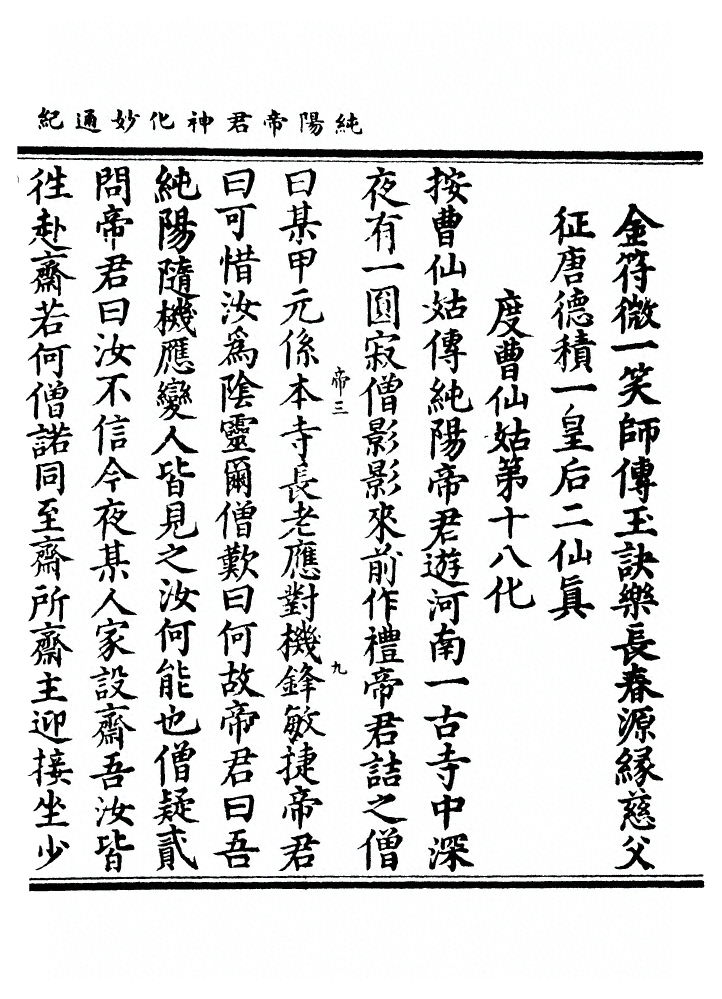 純陽帝君神化妙通紀
金符微一笑師傳玉訣樂長春源緣慈父
征唐德積一皇后二仙眞
度曹仙姑第十八化
按曹仙姑傳純陽帝君遊河南一古寺中深
夜有一圓寂僧影影來前作禮帝君詰之僧
帝三
九
曰某甲元係本寺長老應對機鋒敏捷帝君
曰可惜汝爲陰靈爾僧歎曰何故帝君曰吾
純陽隨機應變人皆見之汝何能也僧疑貳
問帝君曰汝不信今夜某人家設齋吾汝皆
徃赴齋若何僧諾同至齋所齋主迎接坐少